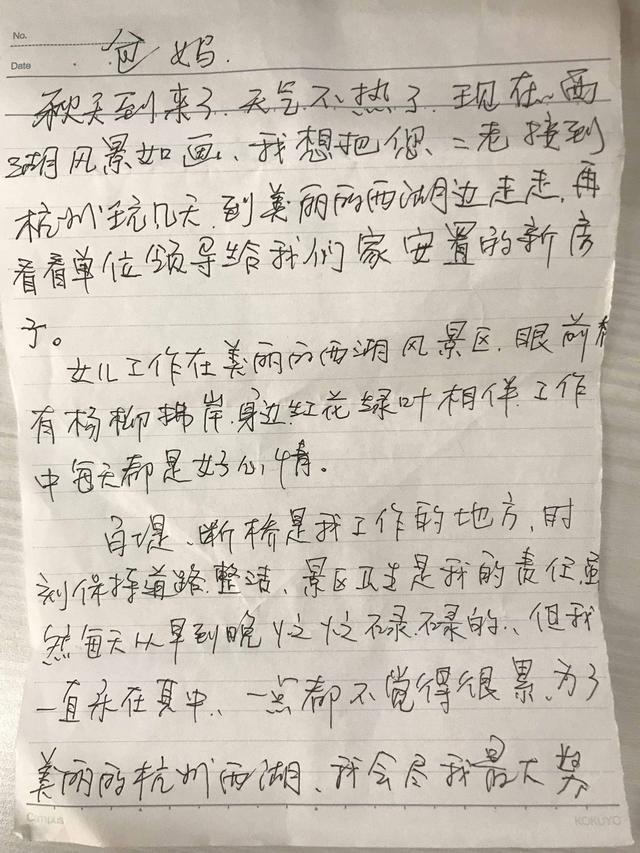 No.
Date
爸妈.
秋天到来了.天气不热了.现在西
湖风景如画、我想把您、二老接到
杭州玩几天.到美丽的西湖边走走.再
看看单位领导给我们家安置的新房
子。
女儿工作在美丽的西湖风景区.眼前
有杨柳拂岸.身边红花绿叶相伴.工作
中每天都是好心情。
白堤、断桥是我工作的地方.时
刻保持道路整洁、景区卫生是我的责任.虽
然每天从早到晚忙忙碌碌的、但我
一直乐在其中、一点都不觉得很累.为了
美丽的杭州西湖、我会尽我最大
Campus
KOKUYO